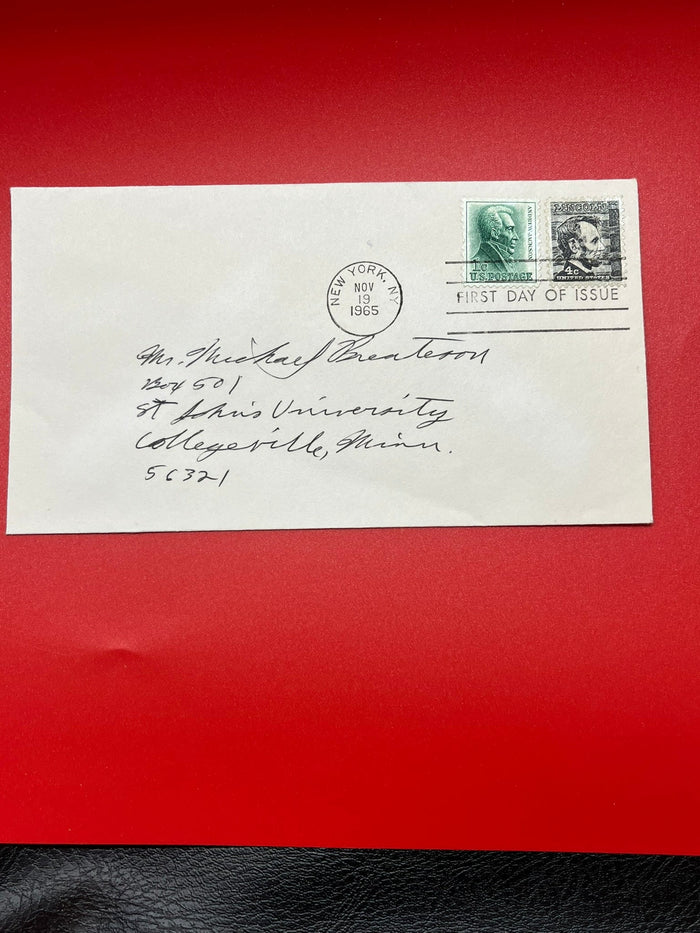 ANDREW JACKSON
1c
U.S. POSTAGE
LINCOLN
4c
UNITED STATES
NEW YORK, N.Y.
NOV
19
1965
FIRST DAY OF ISSUE
Mr. Michael
Box 501
St John's University
Collegeville, Minn.
56321